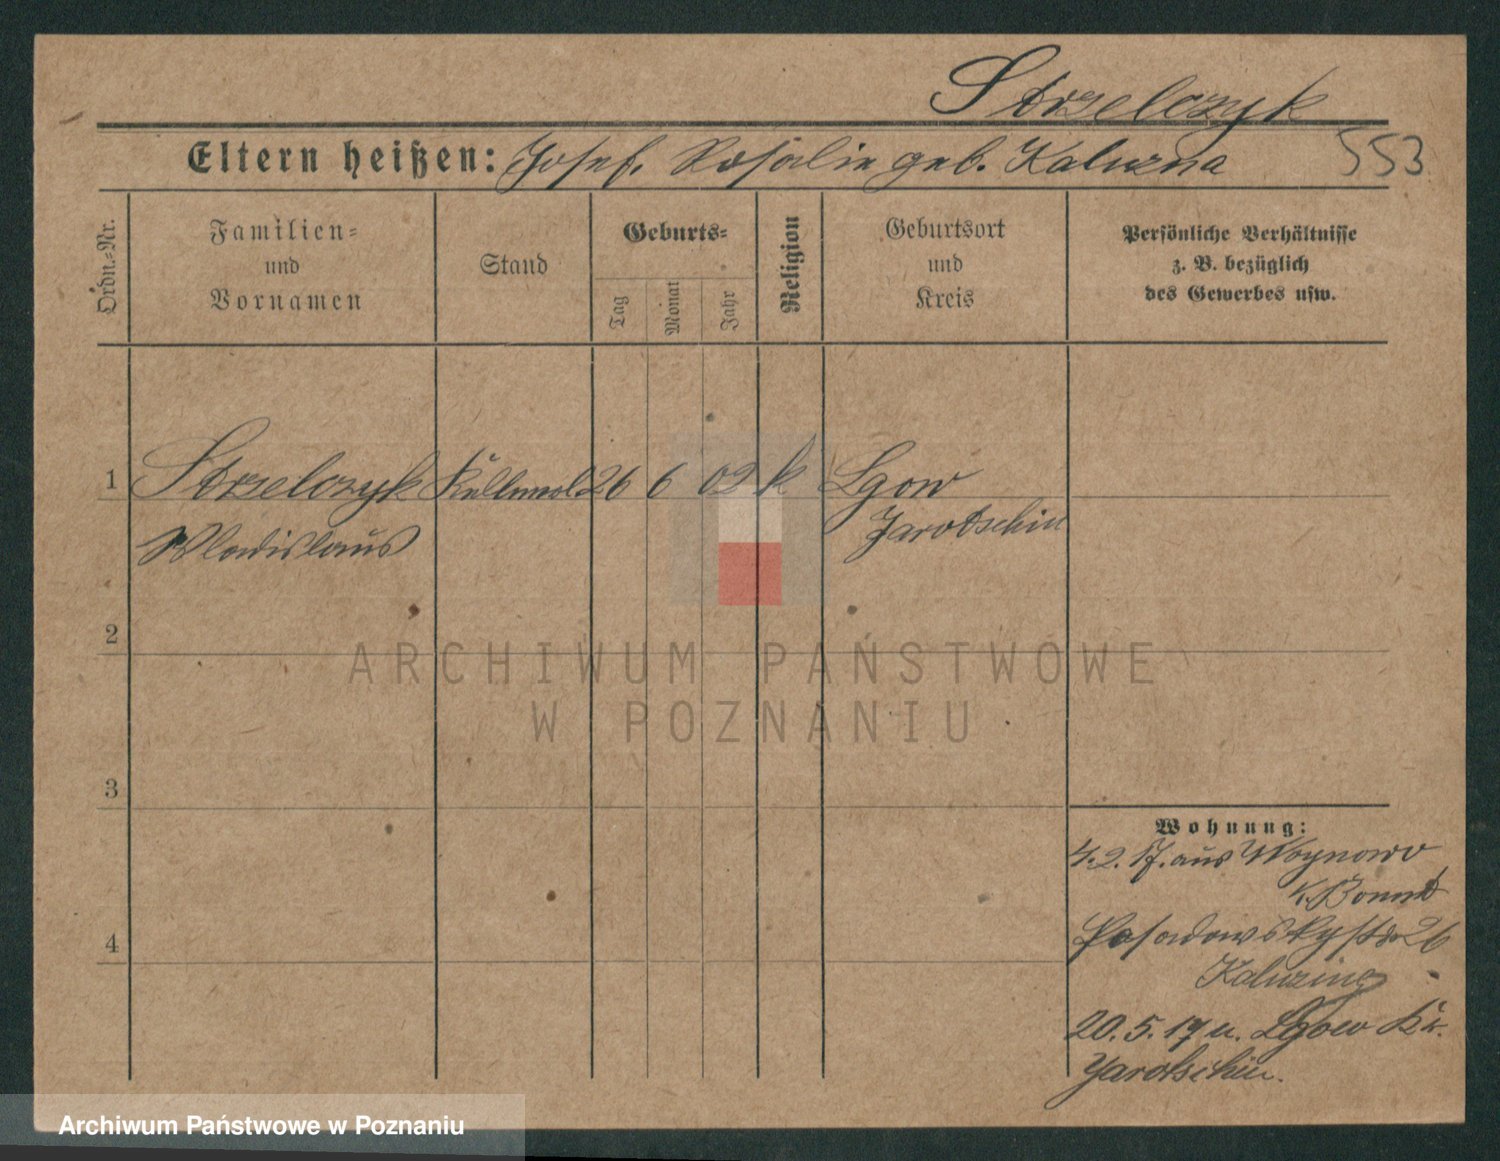 Strzelczyk
Eltern heißen: Josef, Rosalie geb. Kaluzna 553
Ordn.-Nr.
Familien-
und
Vornamen
Stand
Geburts-
Tag
Monat
Jahr
Religion
Geburtsort
und
Kreis
Persönliche Verhältnisse
z. B. bezüglich
des Gewerbes usw.
1 Strzelczyk 26 6 02 k Lgow
Wladislaus Jarotschin
2
3
4
Wohnung:
4.2.17. aus Woynowo
K. Bomst
Posadowskystr 26
20.5.17 n. Lgow Kr.
Jarotschin.
ARCHIWUM PAŃSTWOWE
W POZNANIU
Archiwum Państwowe w Poznaniu